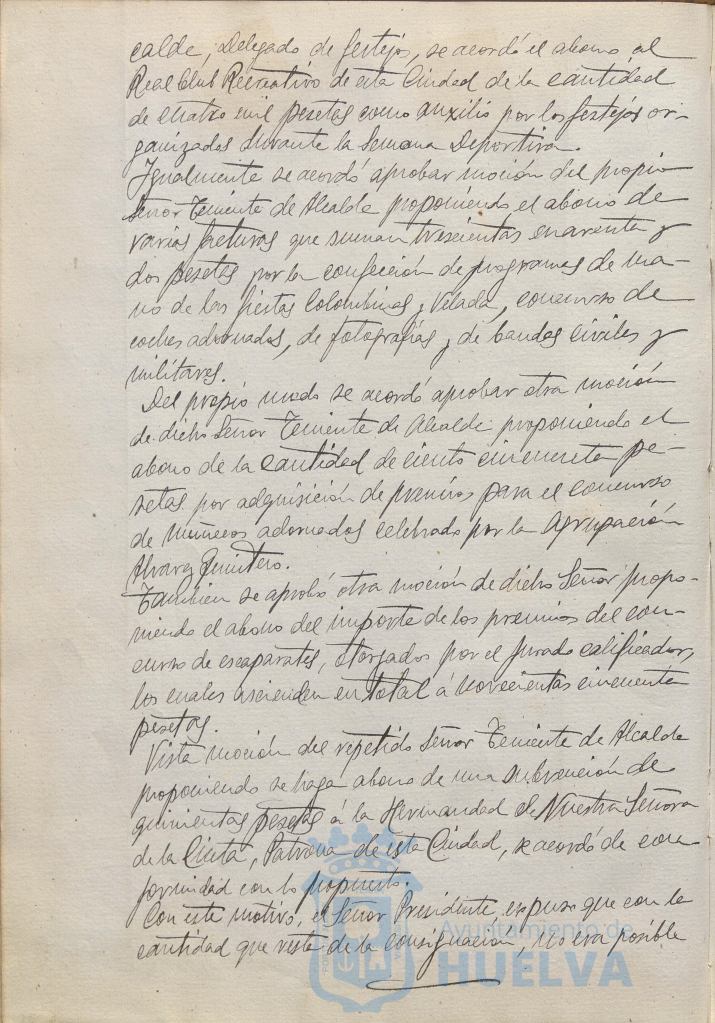 calde, Delegado de festejos, se acordó el abono al
Real Club Recreativo de esta Ciudad de la cantidad
de cuatro mil pesetas como auxilio por los festejos or-
ganizados durante la Semana Deportiva.
Igualmente se acordó aprobar moción del propio
Señor Teniente de Alcalde proponiendo el abono de
varias facturas que suman trescientas cuarenta y
dos pesetas por la confección de programas de ma-
no de las fiestas Colombinas y Velada, concurso de
coches adornados, de fotografías y de bandas civiles y
militares.
Del propio modo se acordó aprobar otra moción
de dicho Señor Teniente de Alcalde proponiendo el
abono de la cantidad de ciento cincuenta pe-
setas por adquisición de premios para el concurso
de muñecos adornados celebrado por la Agrupación
Alvarez Quintero.
Tambien se aprobó otra moción de dicho Señor propo-
niendo el abono del importe de los premios del con-
curso de escaparates, otorgados por el Jurado calificador,
los cuales ascienden en total á novecientas cincuenta
pesetas.
Vista moción del repetido Señor Teniente de Alcalde
proponiendo se haga abono de una subvención de
quinientas pesetas á la Hermandad de Nuestra Señora
de la Cinta, Patrona de esta Ciudad, se acordó de con
formidad con lo propuesto.
Con este motivo, el Señor Presidente, expuso que con la
cantidad que resta de la consignación, no era posible
Ayuntamiento de
HUELVA